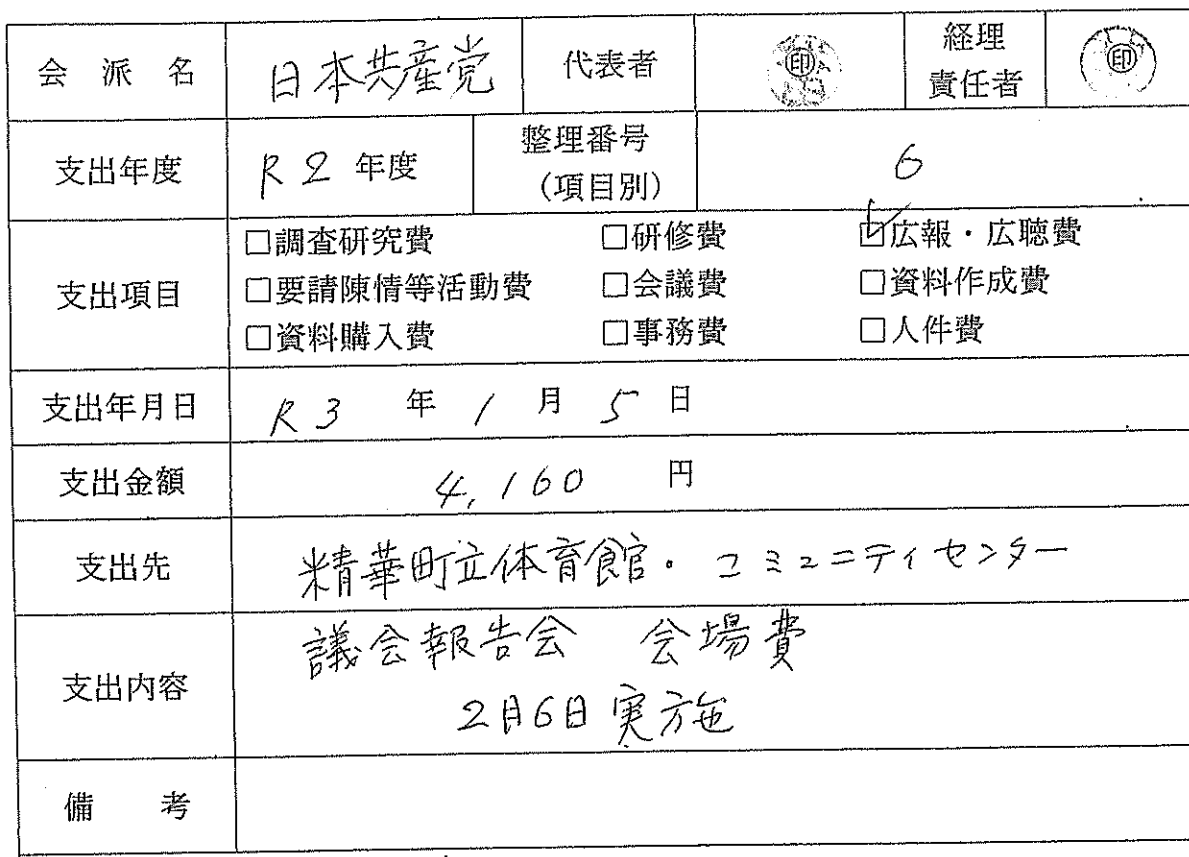 会派名 日本共産党 代表者 印 経理責任者 印
支出年度 R2年度 整理番号(項目別) 6
支出項目
□調査研究費 □研修費 ☑広報・広聴費
□要請陳情等活動費 □会議費 □資料作成費
□資料購入費 □事務費 □人件費
支出年月日 R3年1月5日
支出金額 4,160円
支出先 精華町立体育館・コミュニティセンター
支出内容 議会報告会 会場費
2月6日実施
備考